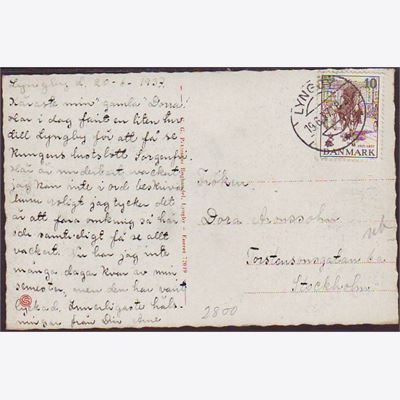 Lyngby, d. 20-6-1937.
Käraste min "gamla" Dora!
Har i dag farit en liten tur
till Lyngby för att få se
Kungens lustslott Sorgenfri.
Här är underbart vackert,
jag kan inte i ord beskriva
huru roligt jag tycker det
är att fara omkring så här
och samtidigt få se allt
vackert. Nu har jag inte
många dagar kvar av min
semester, men den har varit
lyckad. Innerligaste häls-
ningar från Din
LYNGBY
19.6.
10
DANMARK
Fröken
Dora Aronssohn
Torstensonsgatan 6 a
Stockholm
2800